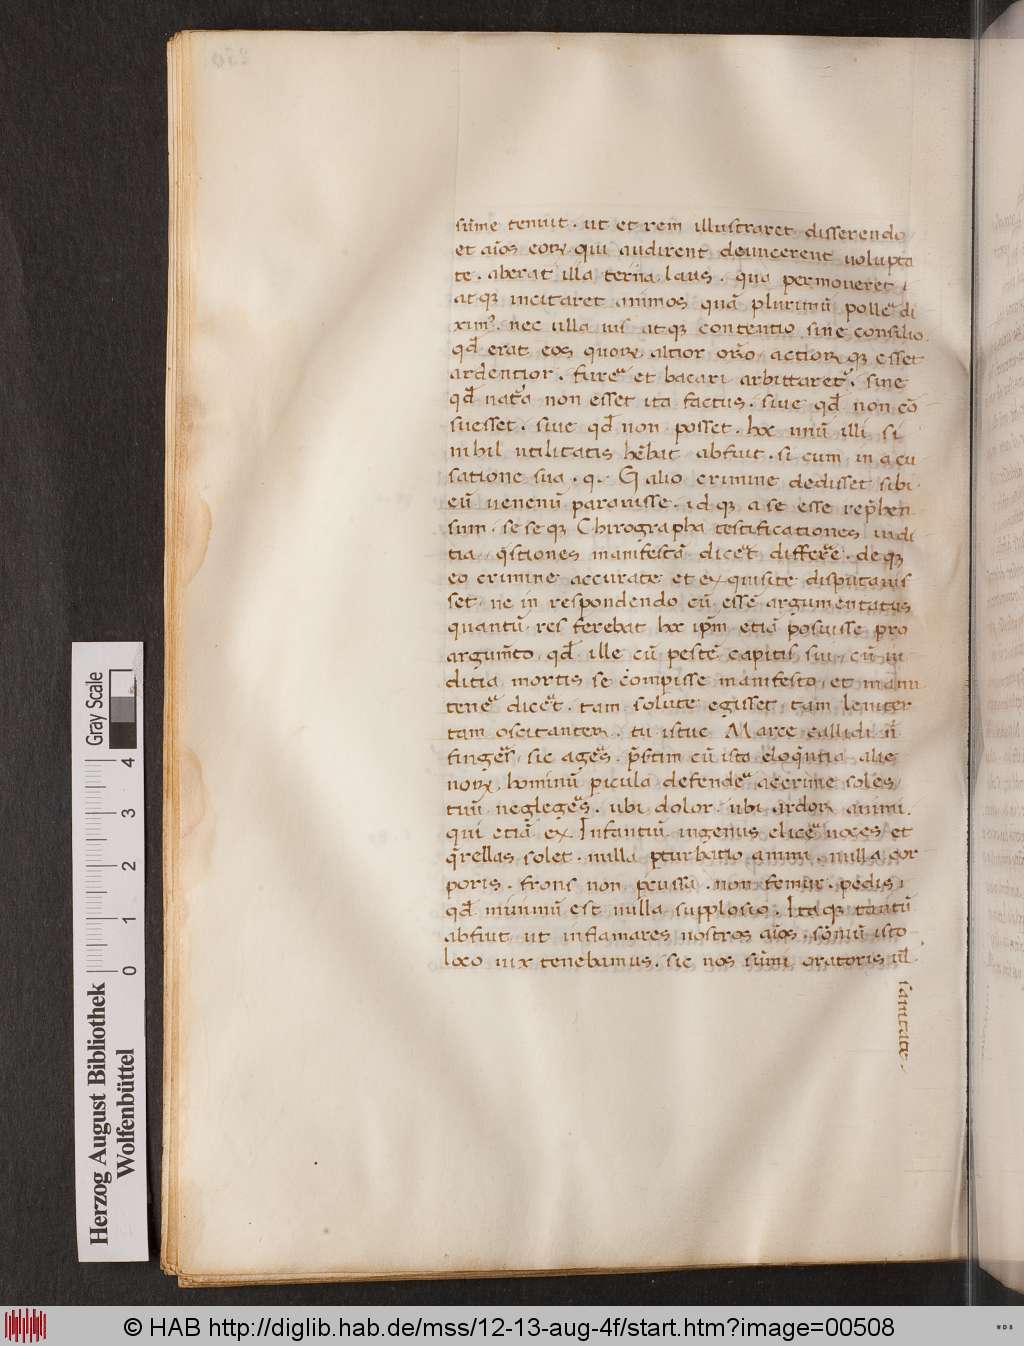 sūme tenuit. ut et rem illustraret disserendo
et aīos eorꝝ qui audirent deuincerent uolupta
te. aberat illa terna laus. qua permoueret
atqꝫ incitaret animos quā plurimū polle᷒ di
ximꝰ. nec ulla uis atqꝫ contentio sine consilio
qd̄ erat eos quorꝝ altior orō actiorꝝ qꝫ esset
ardentior. fure᷒ et bacari arbittaret᷒. sine
qd̄ nat᷒a non esset ita factus. siue qd̄ non cō
suesset. siue qd̄ non posset. hoc unū illi si
nihil utilitatis hēbat abfuit. si cum in acu
satione sua. q. G alio crimine dedisset sibi
eū uenenū parauisse. id qꝫ a se esse rep̄hen
sum. se se qꝫ Chirographa testificationes indi
tia q̄stiones manifestā dice᷒t differ᷒e. de qꝫ
eo crimine accurate et exquisite disputauis
set ne in respondendo cū esset argumentatus
quantū res ferebat hoc ip̄m etiā posuisse pro
argum̄to qd̄ ille cū pestē capitis sui cū in
ditia mortis se cōmpisse manifesto et manu
tene᷒ dice᷒t. tam solute egisset tam leniter
tam oscitanter. tu istuc Marce callidi n̄
finge᷒s sic age᷒s. p̄stim cū isto eloq̄ntia alie
norꝝ hominū picula defende᷒ acerime soles
tuū neglege᷒s. ubi dolor ubi ardor animi.
qui etiā ex Infantiū ingenius elice᷒ uoces et
q̄rellas solet. nulla pturbatio animi. nulla cor
poris. frons non p̄cussa. non femur. pedis
qd̄ minimū est nulla supplosio. Itaqꝫ tantū
abfuit ut inflamares nostros aīos. sōmū isto
loco uix tenebamus. sic nos sūmi oratoris ul̄
sanitate
Gray Scale
0 1 2 3 4
Herzog August Bibliothek
Wolfenbüttel
© HAB http://diglib.hab.de/mss/12-13-aug-4f/start.htm?image=00508